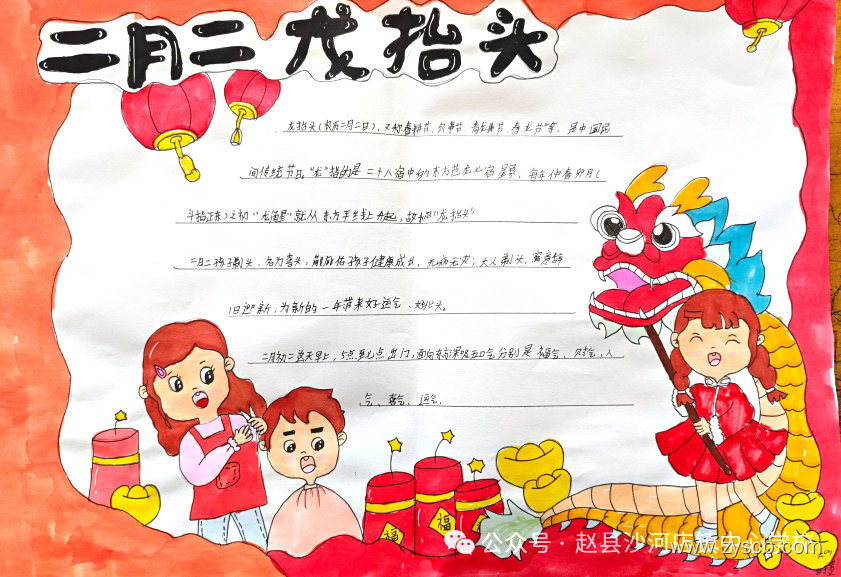 二月二 龙抬头
龙抬头(农历二月二日),又称春耕节、农事节、青龙节、春龙节等,是中国民
间传统节日。"龙"指的是二十八宿中的东方苍龙七宿星象,每年仲春卯月(
斗指正东)之初"龙角星"就从东方地平线上升起,故称"龙抬头"
二月二孩子剃头,名为喜头,能保佑孩子健康成长,无病无灾;大人剃头,寓意辞
旧迎新,为新的一年带来好运气、
二月初二这天早上,5点至7点出门,面向东方深吸五口气分别是福气、财气、人
气、喜气、运气
福
福
公众号·赵县沙河店镇中心学校
www.zyscb.com